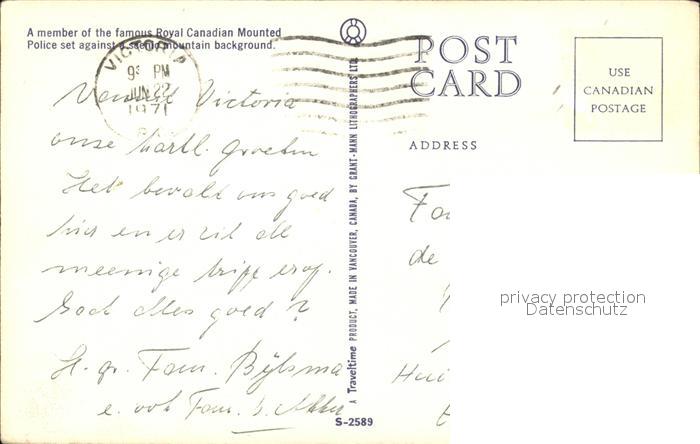 A member of the famous Royal Canadian Mounted
Police set against a scenic mountain background.
VICTORIA
9 PM
JUN 22
1971
Vanuit Victoria
onze hartl. groeten
Het bevalt ons goed
hier en er zit al
menige tripje erop.
Gaat alles goed?
H. gr. Fam. Bijlsma
e. ook Fam.
A Traveltime PRODUCT, MADE IN VANCOUVER, CANADA, BY GRANT-MANN LITHOGRAPHERS LTD.
S-2589
POST
CARD
USE
CANADIAN
POSTAGE
ADDRESS
de
privacy protection
Datenschutz